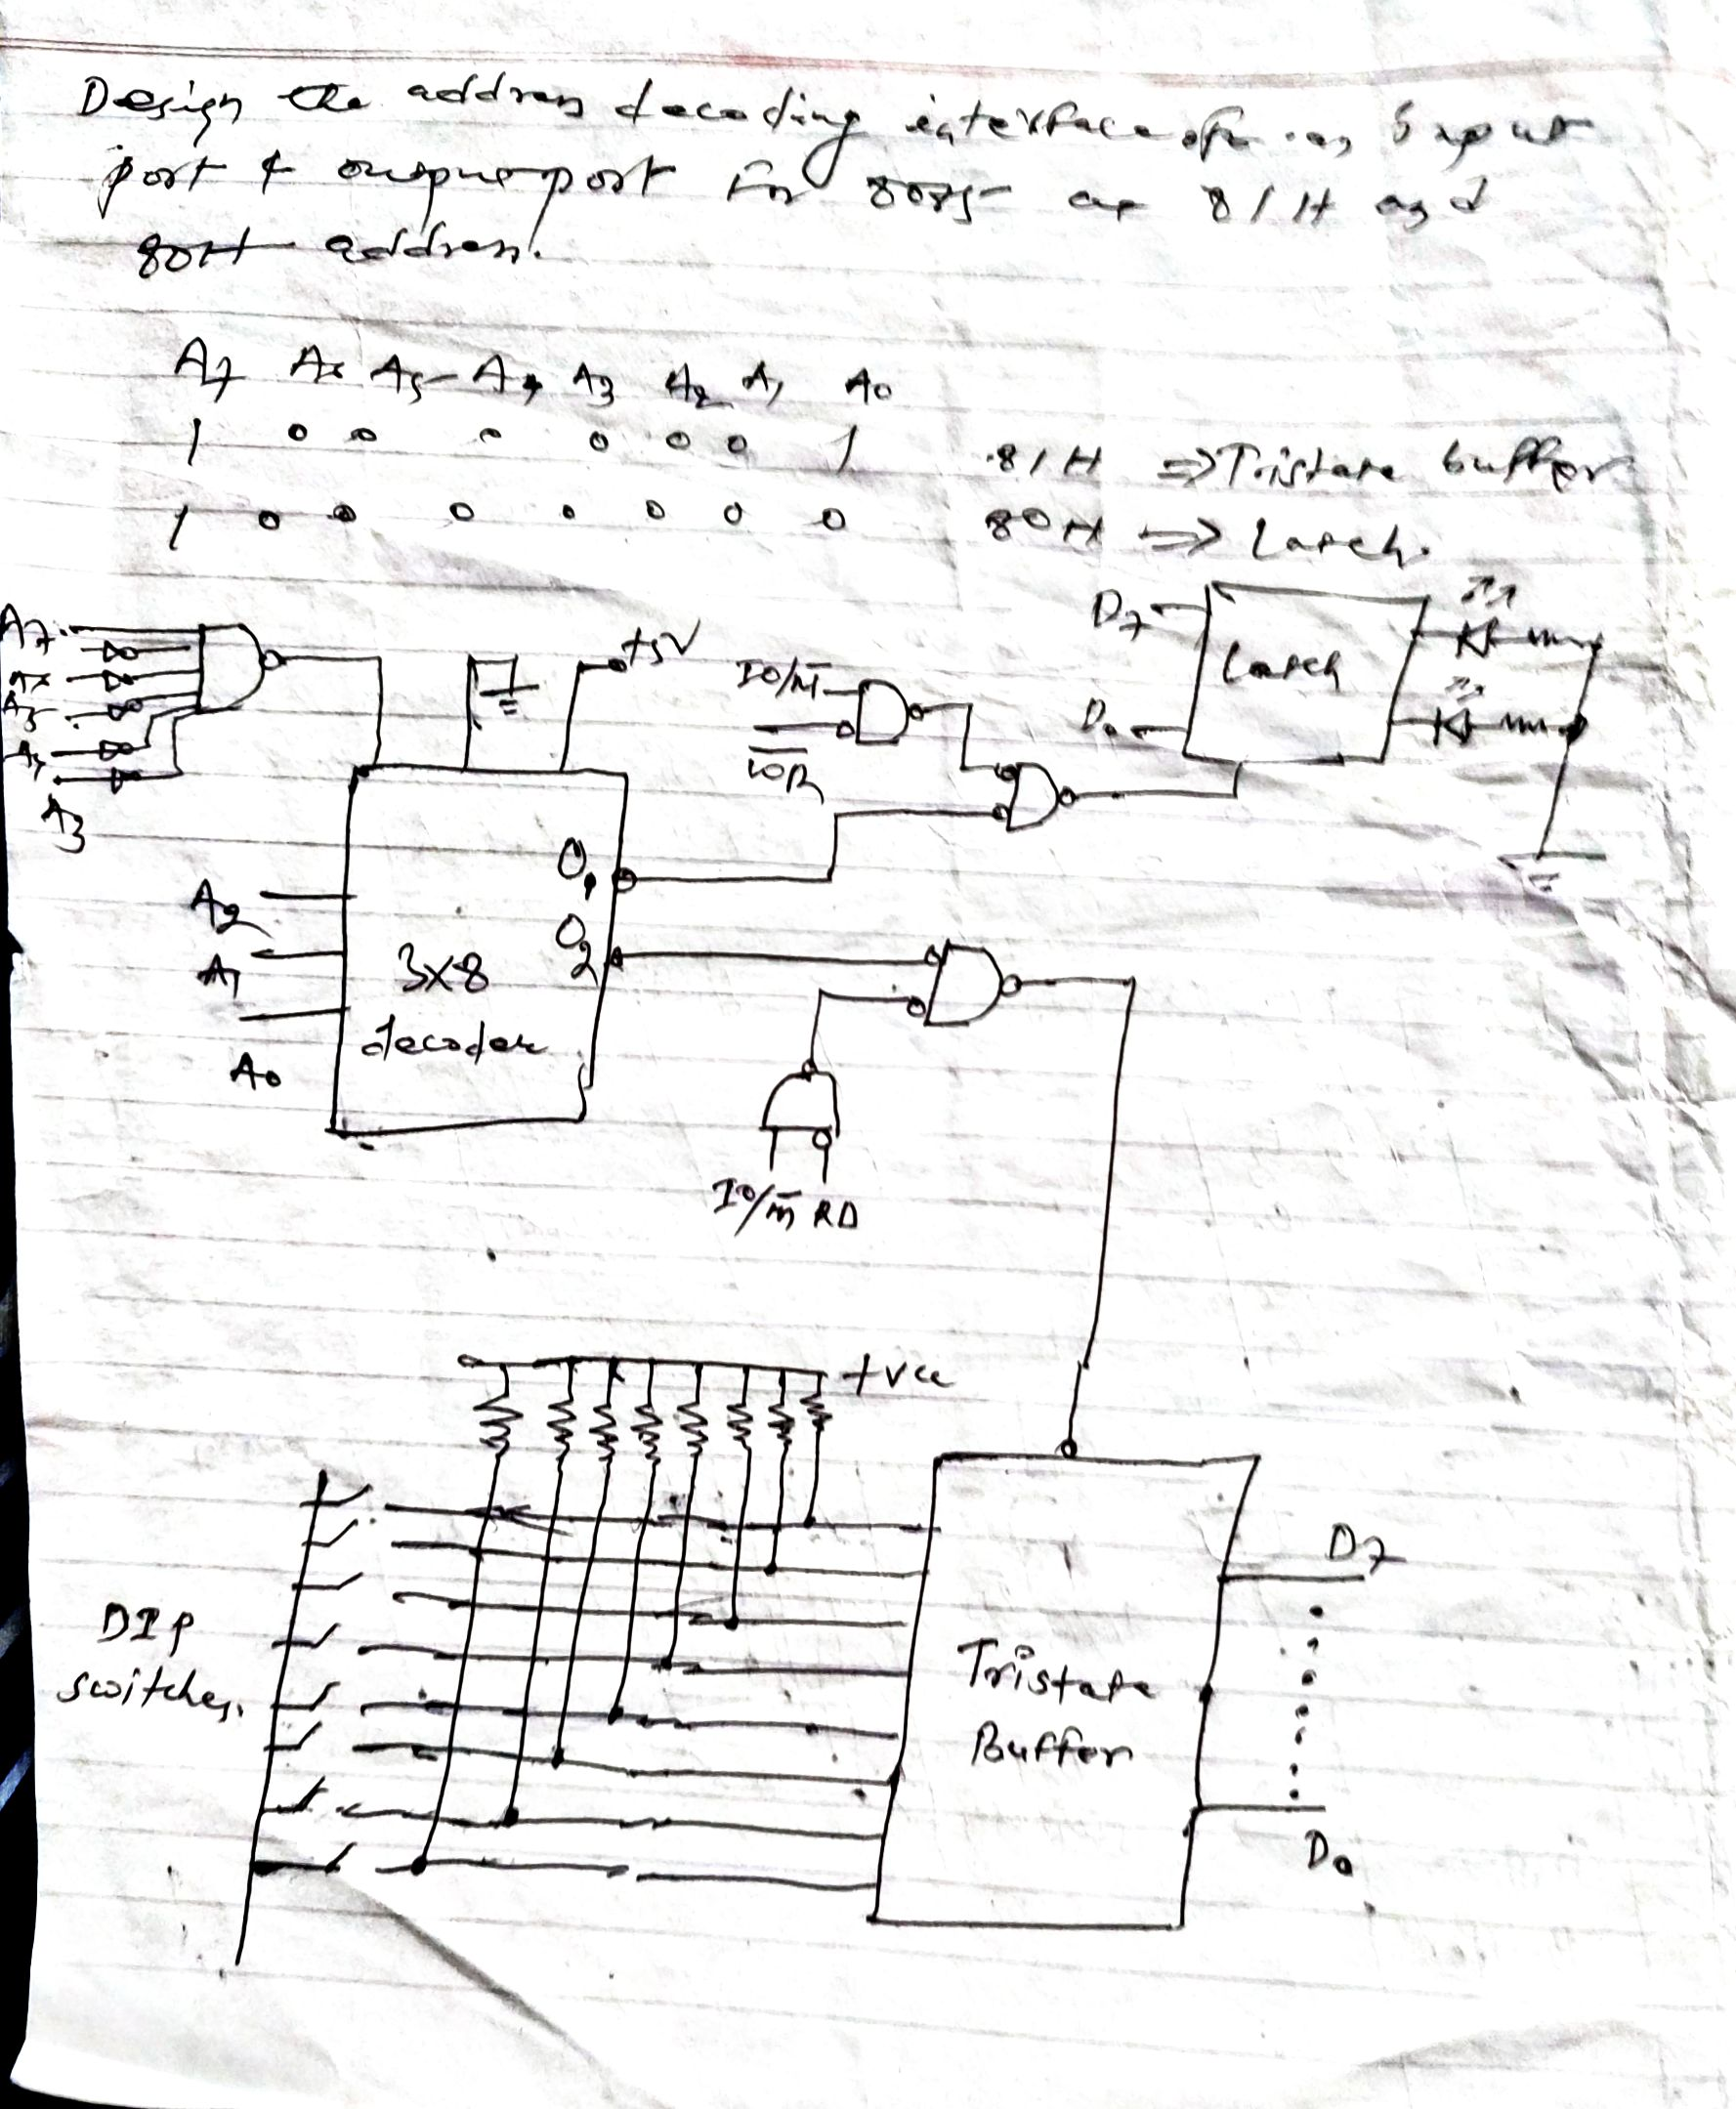 Design the address decoding interface of an input
port & output port for 8085 at 81H and
80H address.
A7 A6 A5 A4 A3 A2 A1 A0
1 0 0 0 0 0 0 1 81H => Tristate buffer
1 0 0 0 0 0 0 0 80H => Latch.
D7
Latch
D0
A7
A6
A5
A4
A3
+5V
IO/M̅
I̅O̅R̅
O1
O2
A2
A1
A0
3x8
decoder
IO/m̅ RD
+vcc
DIP
switches.
Tristate
Buffer
D7
D0